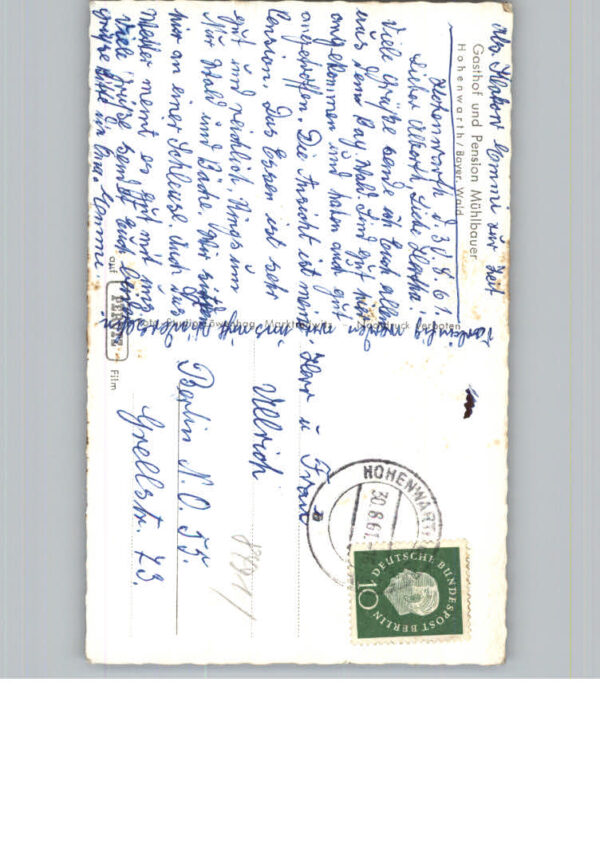 Gasthof und Pension Mühlbauer
Hohenwarth / Bayer. Wald
Hohenwarth d. 30.8.61.
Lieber Albert, Liebe Hertha
Viele Grüße sende ich Euch allen
aus dem Bay. Wald. Sind gut hier
angekommen und haben auch gut
angetroffen. Die Ansicht ist meine
Pension. Das Essen ist sehr
gut und reichlich. Rings um
Nur Wald und Bäche. Wir
hier an einer Schleuse. Auch das
Wetter meint es gut mit uns
Viele Grüße sendet Euch
Nachdruck verboten
auf
PERUTZ
Film
Herr u Frau
Ullrich
Berlin N.O. 55.
Grellstr. 73.
HOHENWARTH
30.8.61
DEUTSCHE BUNDESPOST BERLIN
10